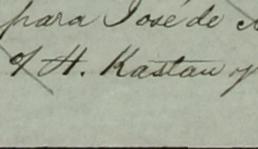 para José de
y H. Kastan y